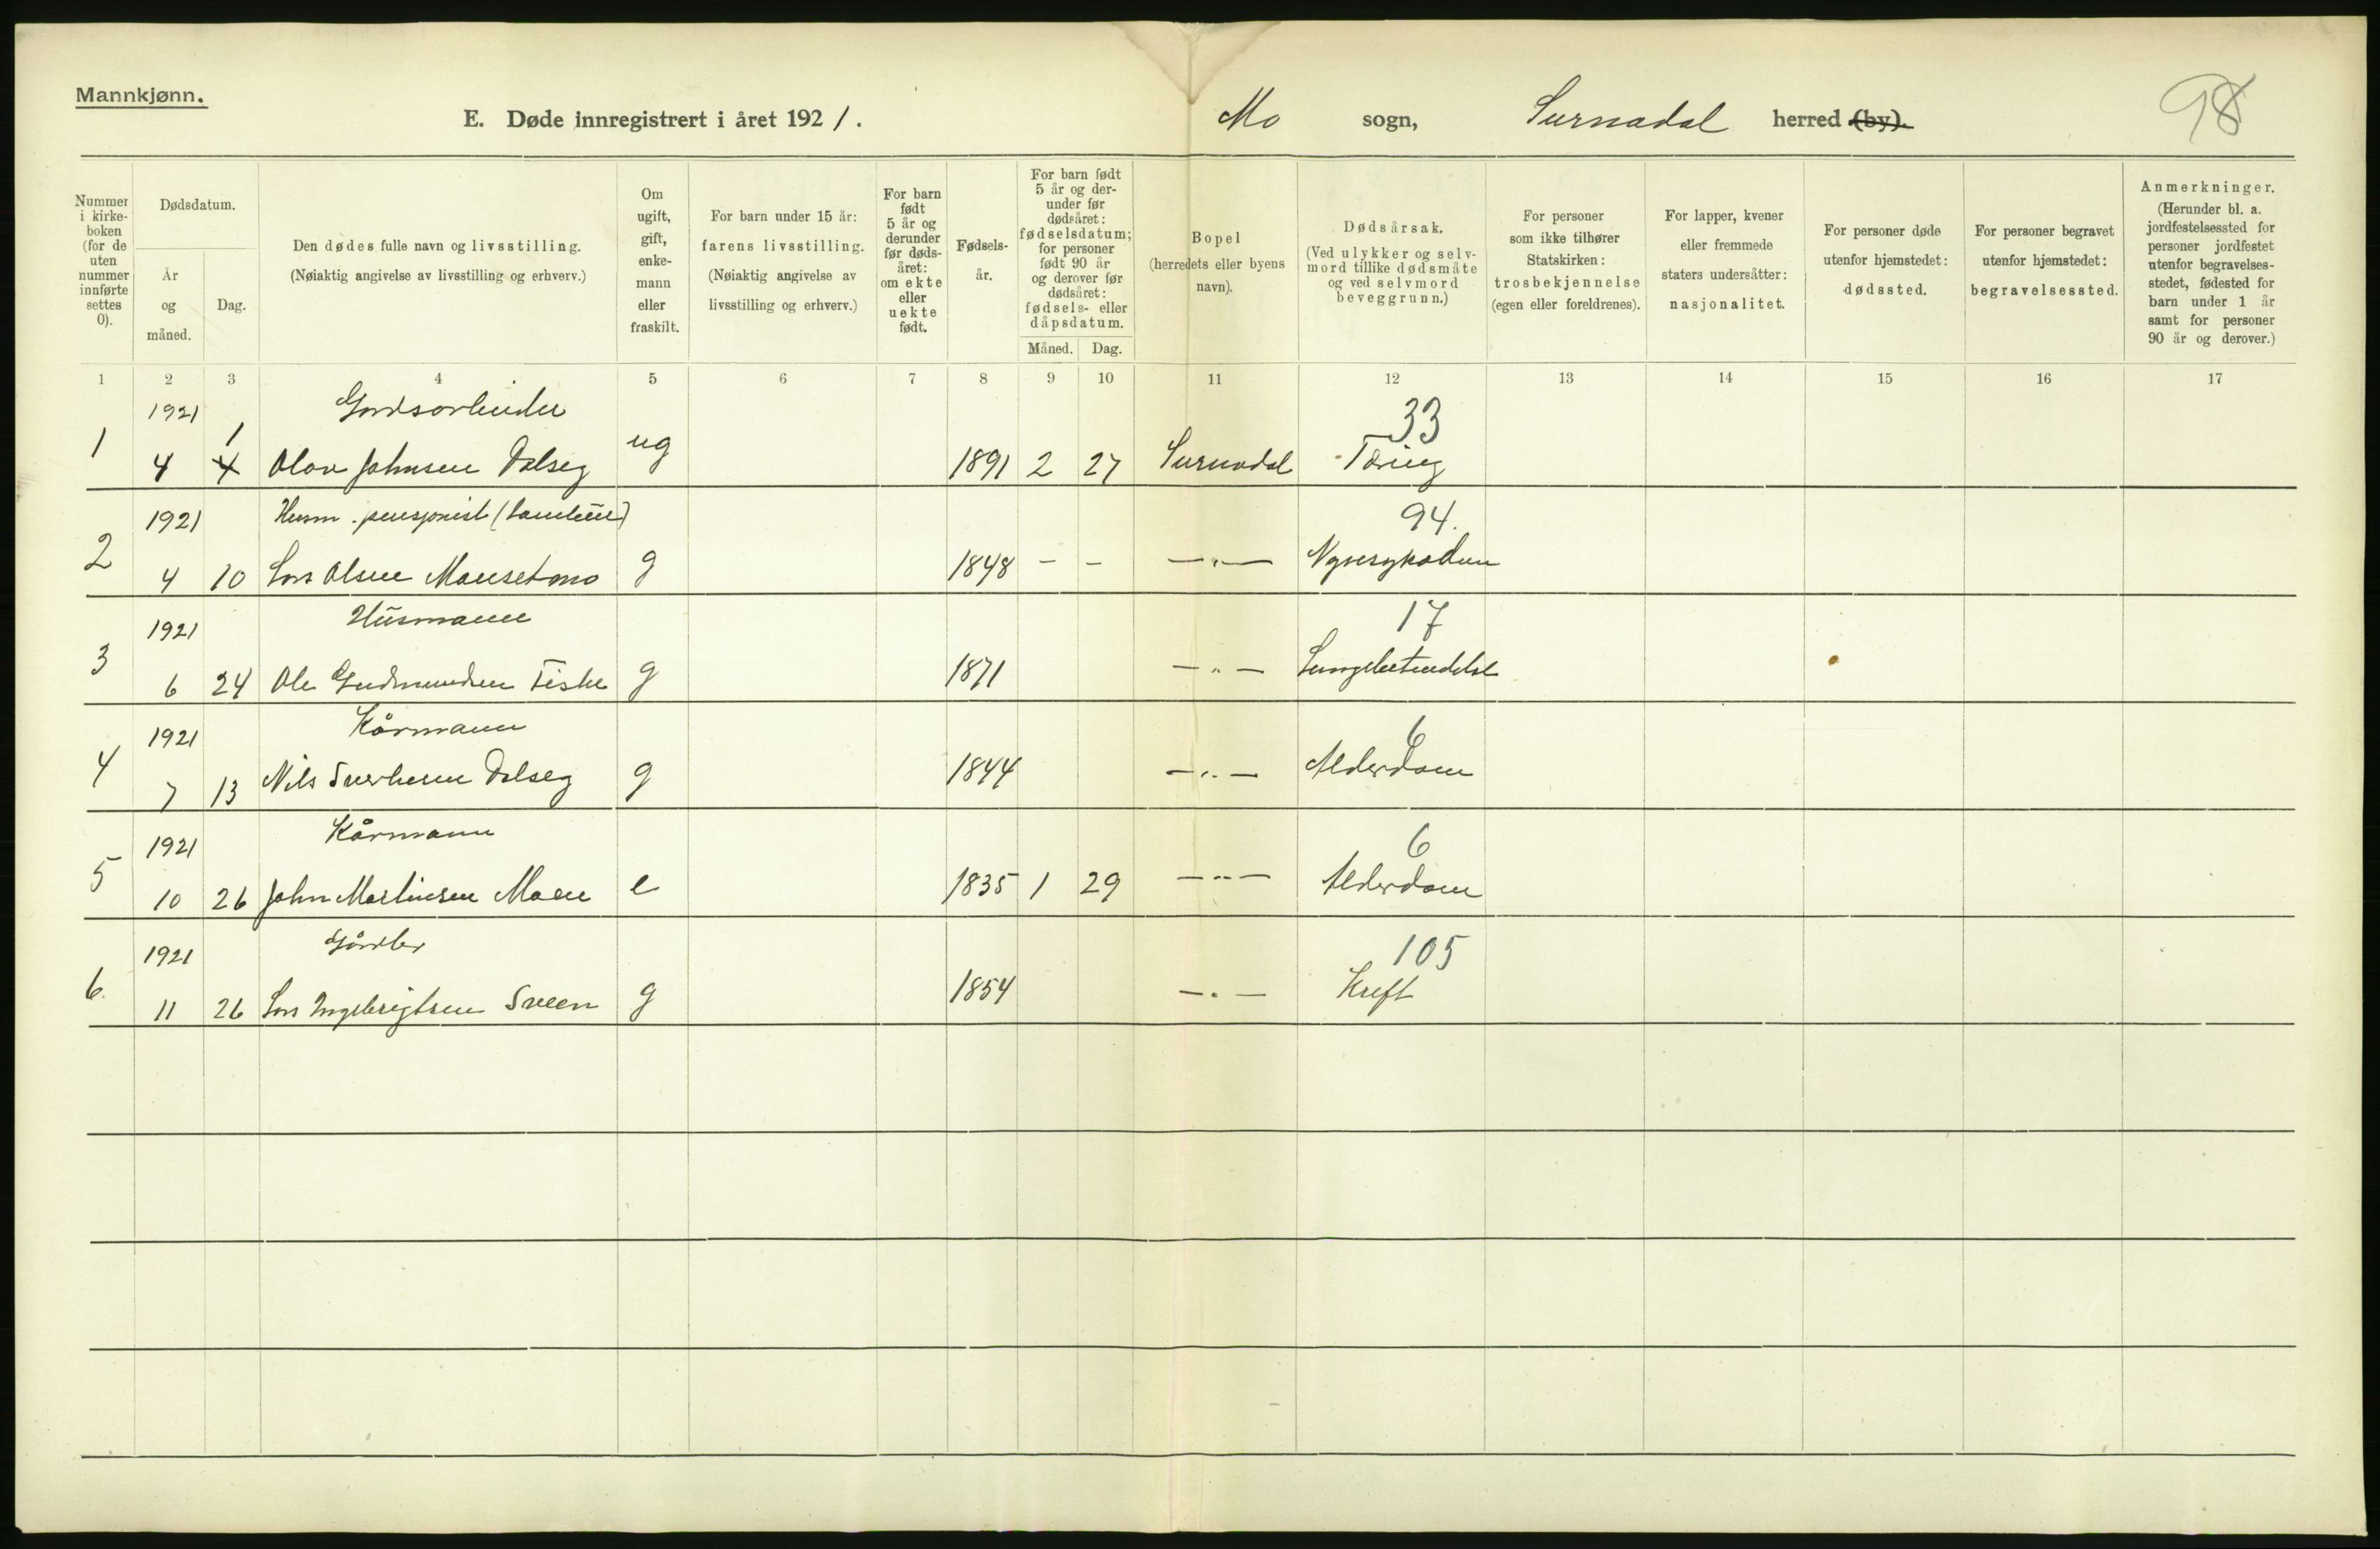 Mannkjønn.
E. Døde innregistrert i året 1921.
Mo sogn, Surnadal herred (by).
98
Nummer i kirke- boken (for de uten nummer innførte settes 0).
Dødsdatum.
År og måned.
Dag.
Den dødes fulle navn og livsstilling.
(Nøiaktig angivelse av livsstilling og erhverv.)
Om ugift, gift, enke- mann eller fraskilt.
For barn under 15 år:
farens livsstilling.
(Nøiaktig angivelse av
livsstilling og erhverv.)
For barn født 5 år og derunder før døds- året: om ekte eller uekte født.
Fødsels- år.
For barn født 5 år og der- under før dødsåret: fødselsdatum; for personer født 90 år og derover før dødsåret: fødsels- eller dåpsdatum.
Måned. Dag.
Bopel
(herredets eller byens navn).
Dødsårsak.
(Ved ulykker og selv- mord tillike dødsmåte og ved selvmord beveggrunn.)
For personer som ikke tilhører Statskirken: trosbekjennelse (egen eller foreldrenes).
For lapper, kvener eller fremmede staters undersåtter: nasjonalitet.
For personer døde utenfor hjemstedet: dødssted.
For personer begravet utenfor hjemstedet: begravelsessted.
Anmerkninger.
(Herunder bl. a. jordfestelsessted for personer jordfestet utenfor begravelses- stedet, fødested for barn under 1 år samt for personer 90 år og derover.)
1 2 3 4 5 6 7 8 9 10 11 12 13 14 15 16 17
1921 1 Gardsarbeider 33
1 4 4 Olav Johnsen Dalseg ug 1891 2 27 Surnadal Tæring
1921 Husm. pensjonist 94.
2 4 10 Lars Olsen Mausetmo g 1848 - - —"— Nyresykdom
1921 Husmann 17
3 6 24 Ole Gudmundsen Fiske g 1871 —"— Lungebetendelse
1921 Kårmann 6
4 7 13 Nils Sverkesen Dalseg g 1844 —"— Alderdom
1921 Kårmann 6
5 10 26 John Martinsen Moen e 1835 1 29 —"— Alderdom
1921 Gårdbr 105
6. 11 26 Lars Ingebrigtsen Sveen g 1854 —"— Kreft